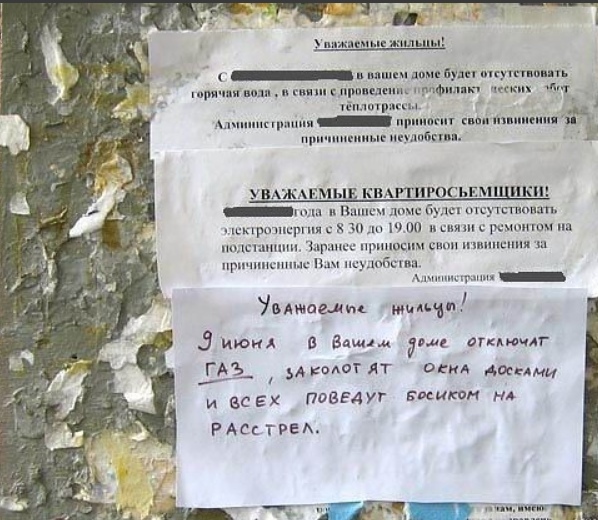 Уважаемые жильцы!
С в вашем доме будет отсутствовать
горячая вода , в связи с проведение
теплотрассы.
Администрация приносит свои извинения за
причиненные неудобства.
УВАЖАЕМЫЕ КВАРТИРОСЬЕМЩИКИ!
года в Вашем доме будет отсутствовать
электроэнергия с 8 30 до 19.00 в связи с ремонтом на
подстанции. Заранее приносим свои извинения за
причиненные Вам неудобства.
Администрация
Уважаемые жильцы!
9 июня в Вашем доме отключат
ГАЗ , заколотят окна досками
и всех поведут босиком на
расстрел.